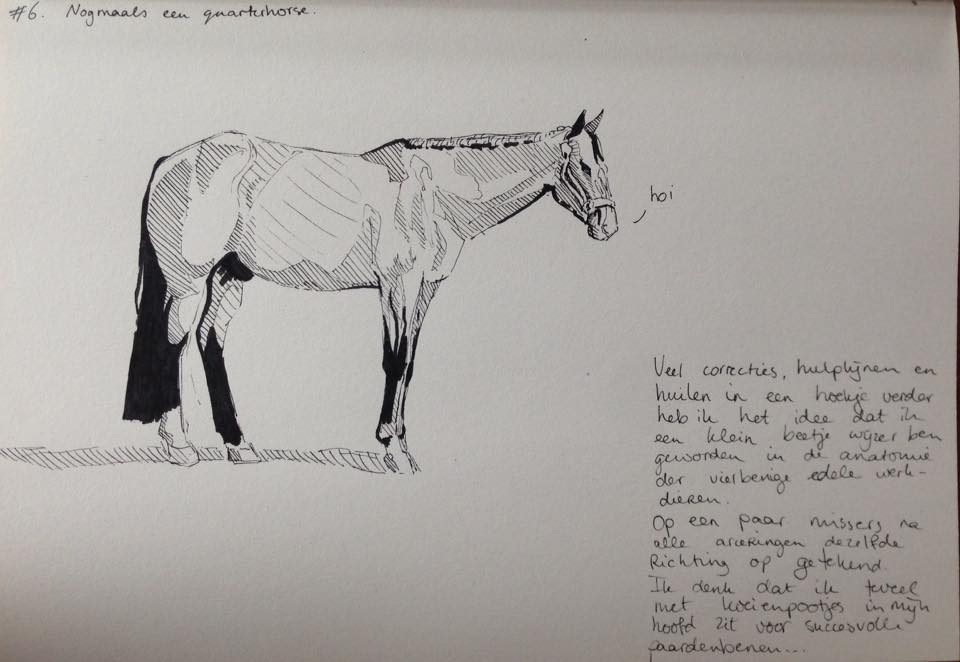 #6. Nogmaals een quarterhorse.
hoi
Veel correcties, hulplijnen en
huilen in een hoekje verder
heb ik het idee dat ik
een klein beetje wijzer ben
geworden in de anatomie
der vierbenige edele werk-
dieren.
Op een paar missers na
alle arceringen dezelfde
Richting op getekend.
Ik denk dat ik teveel
met koeienpootjes in mijn
hoofd zit voor succesvolle
paardenbenen...